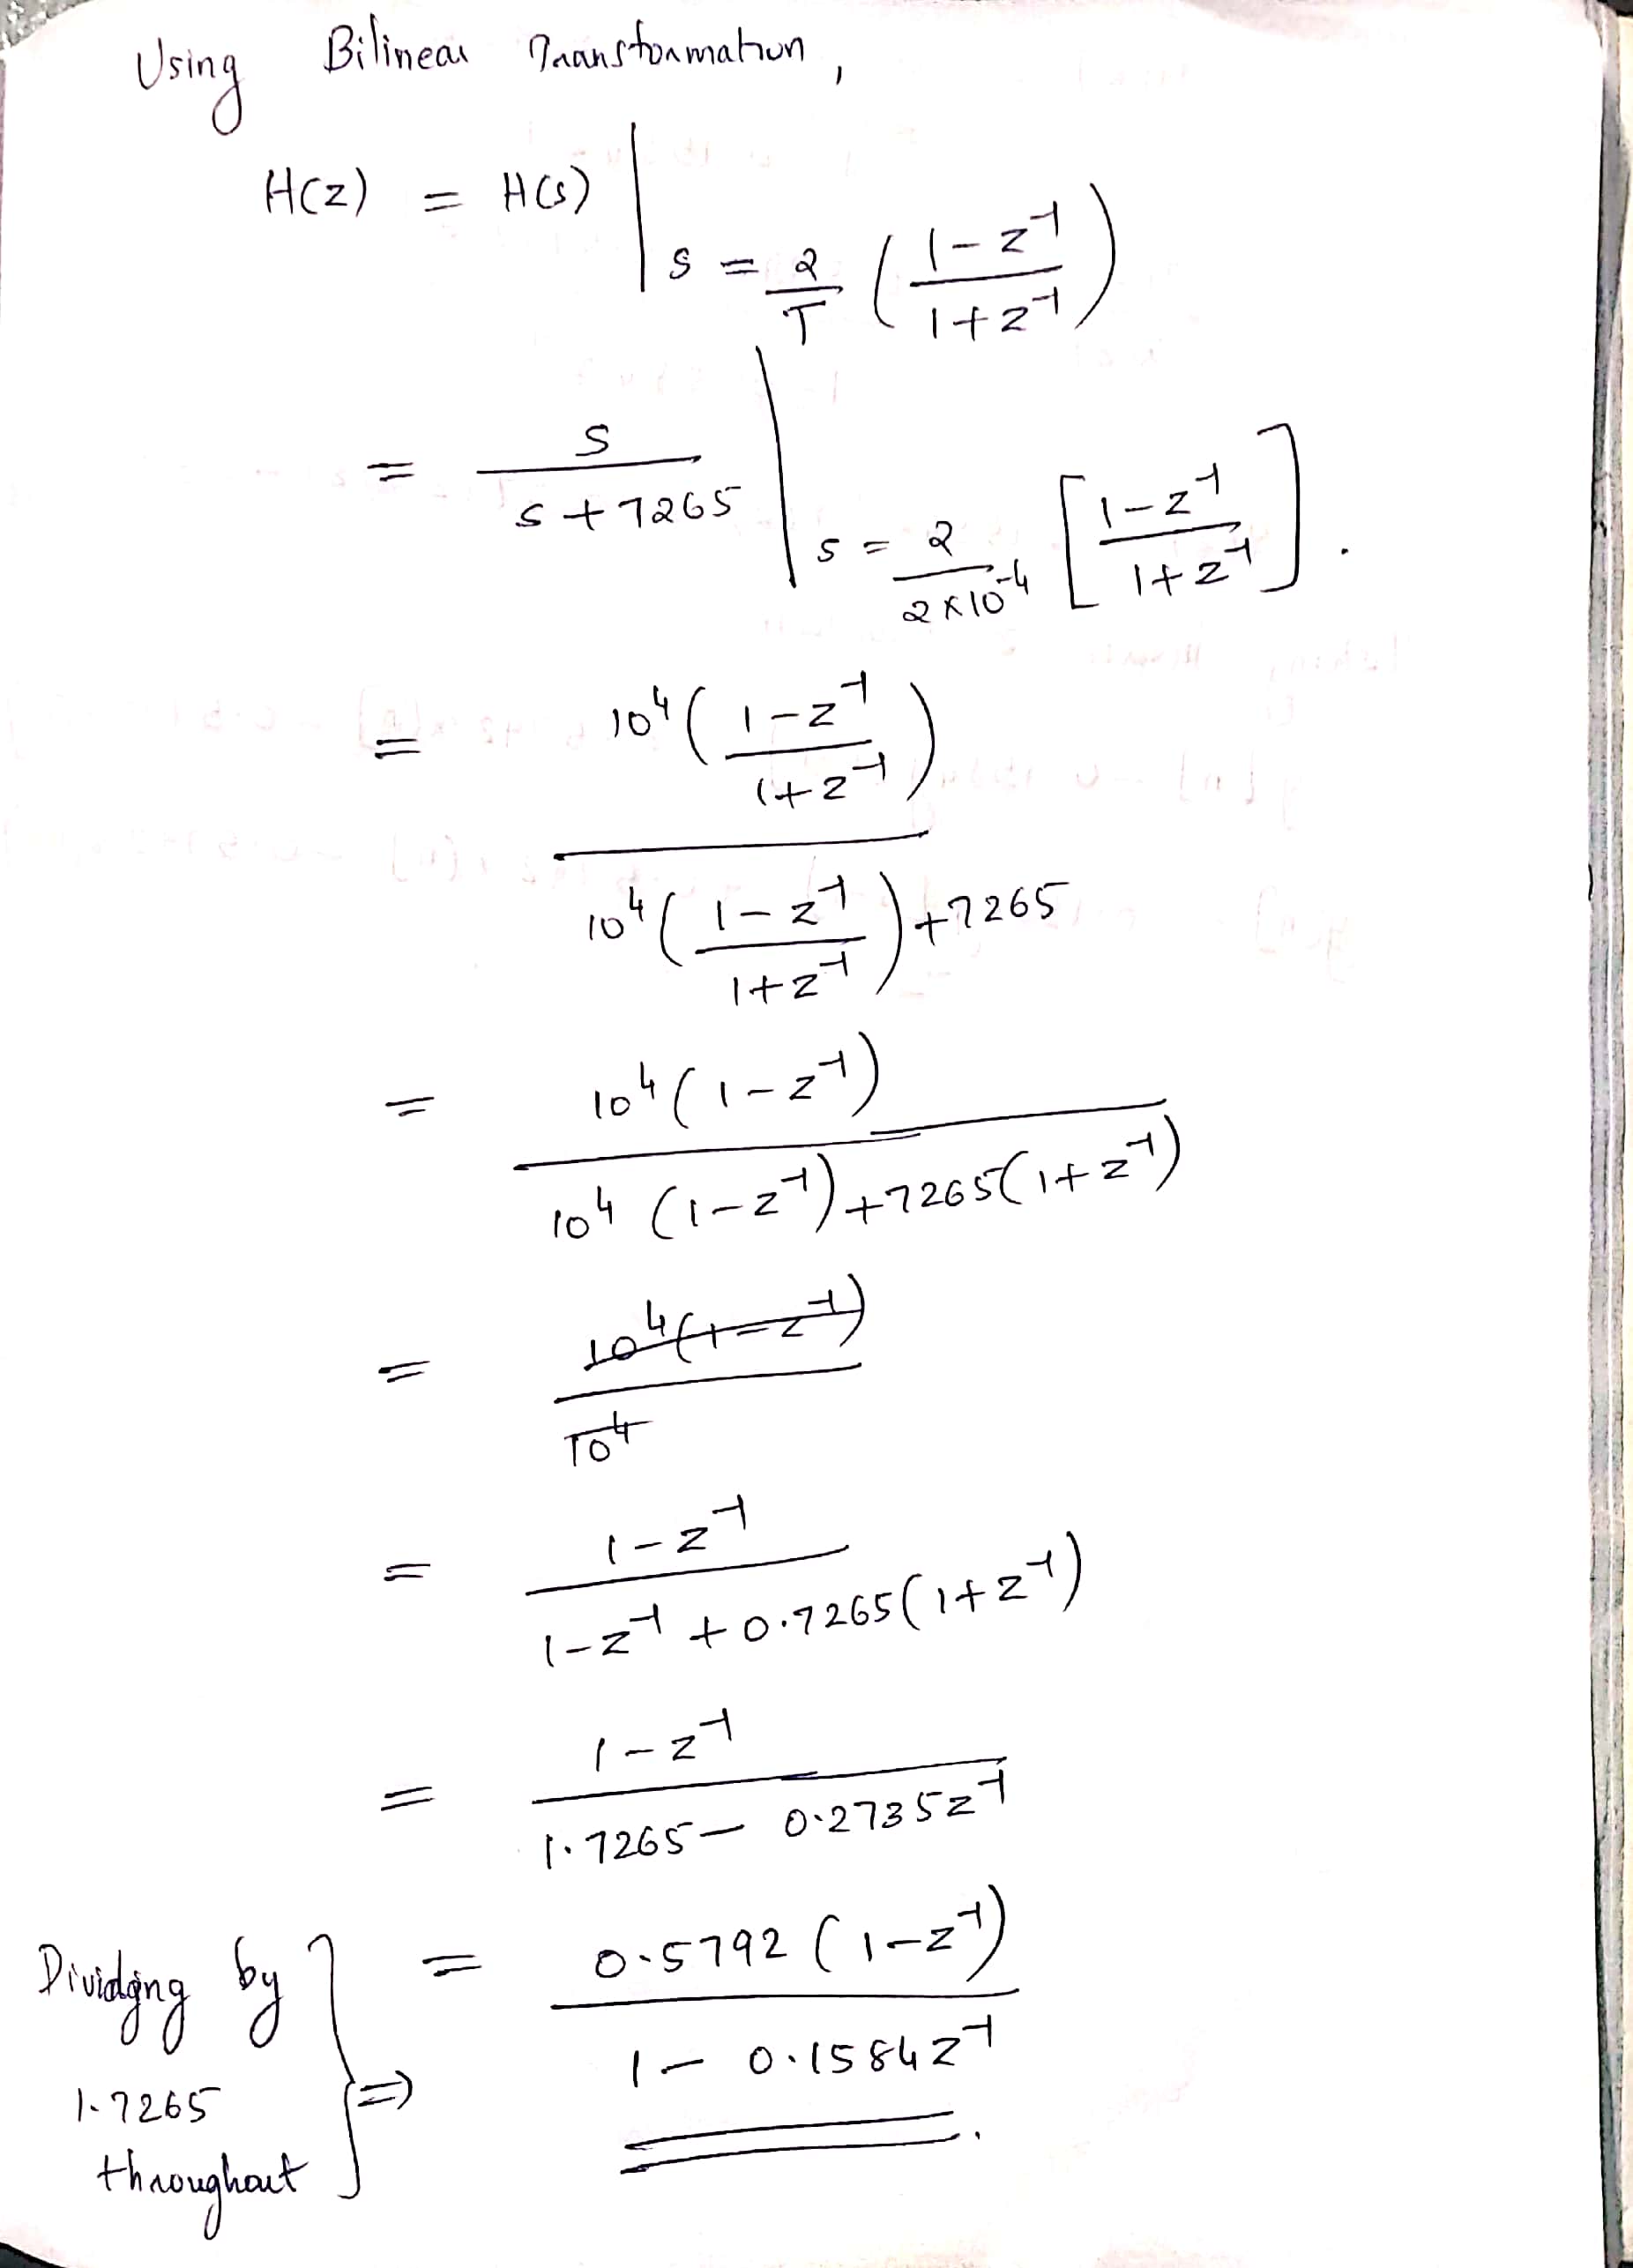 Using Bilinear Transformation,
H(z) = H(s) | s = 2/T ( (1 - z^-1) / (1 + z^-1) )
= s / (s + 7265) | s = 2 / (2 × 10^-4) [ (1 - z^-1) / (1 + z^-1) ] .
= 10^4 ( (1 - z^-1) / (1 + z^-1) ) / ( 10^4 ( (1 - z^-1) / (1 + z^-1) ) + 7265 )
= 10^4 (1 - z^-1) / ( 10^4 (1 - z^-1) + 7265 (1 + z^-1) )
= 10^4 (1 - z^-1) / 10^4
= (1 - z^-1) / ( 1 - z^-1 + 0.7265 (1 + z^-1) )
= (1 - z^-1) / ( 1.7265 - 0.2735 z^-1 )
Dividing by
1.7265
throughout } ⇒
= 0.5792 (1 - z^-1) / ( 1 - 0.1584 z^-1 ) .